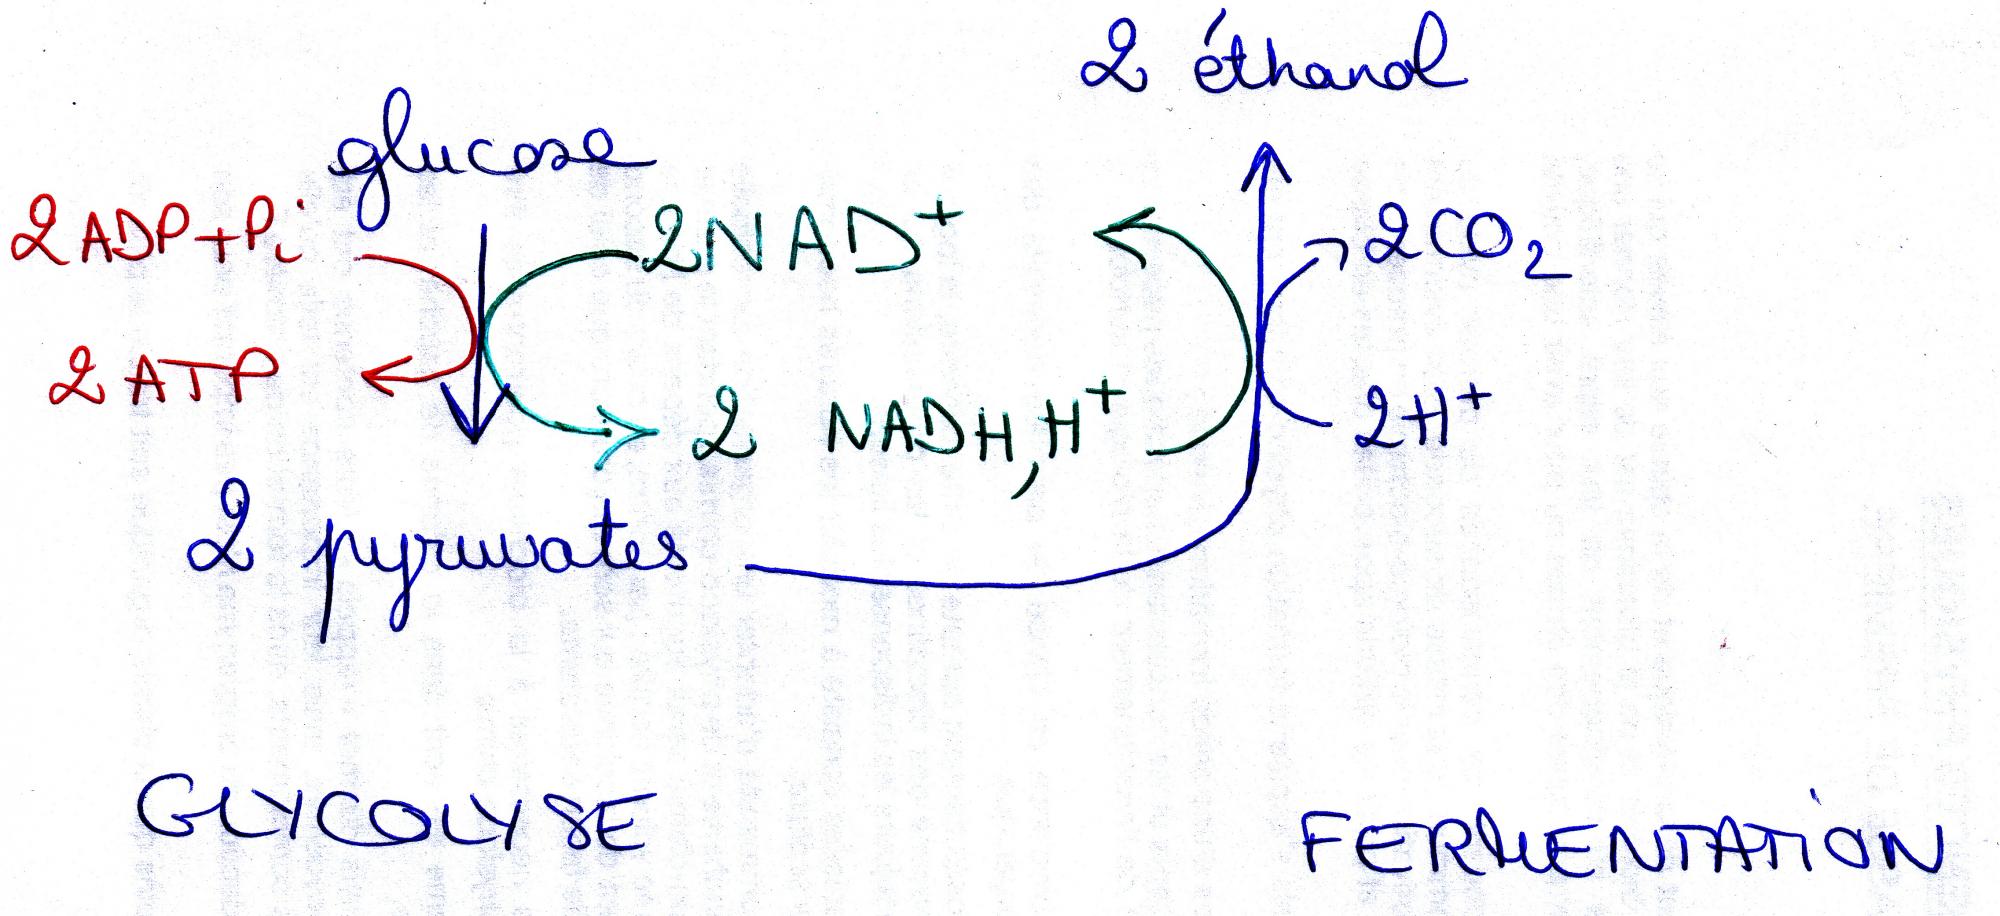 2 éthanol
glucose
2ADP+Pi
2NAD+
2CO2
2 ATP
2 NADH,H+
2H+
2 pyruvates
GLYCOLYSE
FERMENTATION